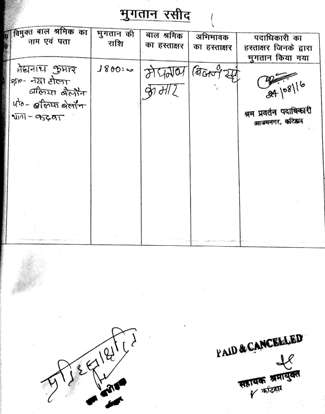 भुगतान रसीद
विमुक्त बाल श्रमिक का नाम एवं पता
भुगतान की राशि
बाल श्रमिक का हस्ताक्षर
अभिभावक का हस्ताक्षर
पदाधिकारी का हस्ताक्षर जिनके द्वारा भुगतान किया गया
मेघनाथ कुमार
नया टोला
बलिया बेलौन
पो०- बलिया बेलौन
थाना- कदवा
1800
कुमार
24/08/16
श्रम प्रवर्तन पदाधिकारी
आजमनगर, कटिहार
प्रतिहस्ताक्षरित
श्रम अधीक्षक
PAID & CANCELLED
सहायक श्रमायुक्त
कटिहार